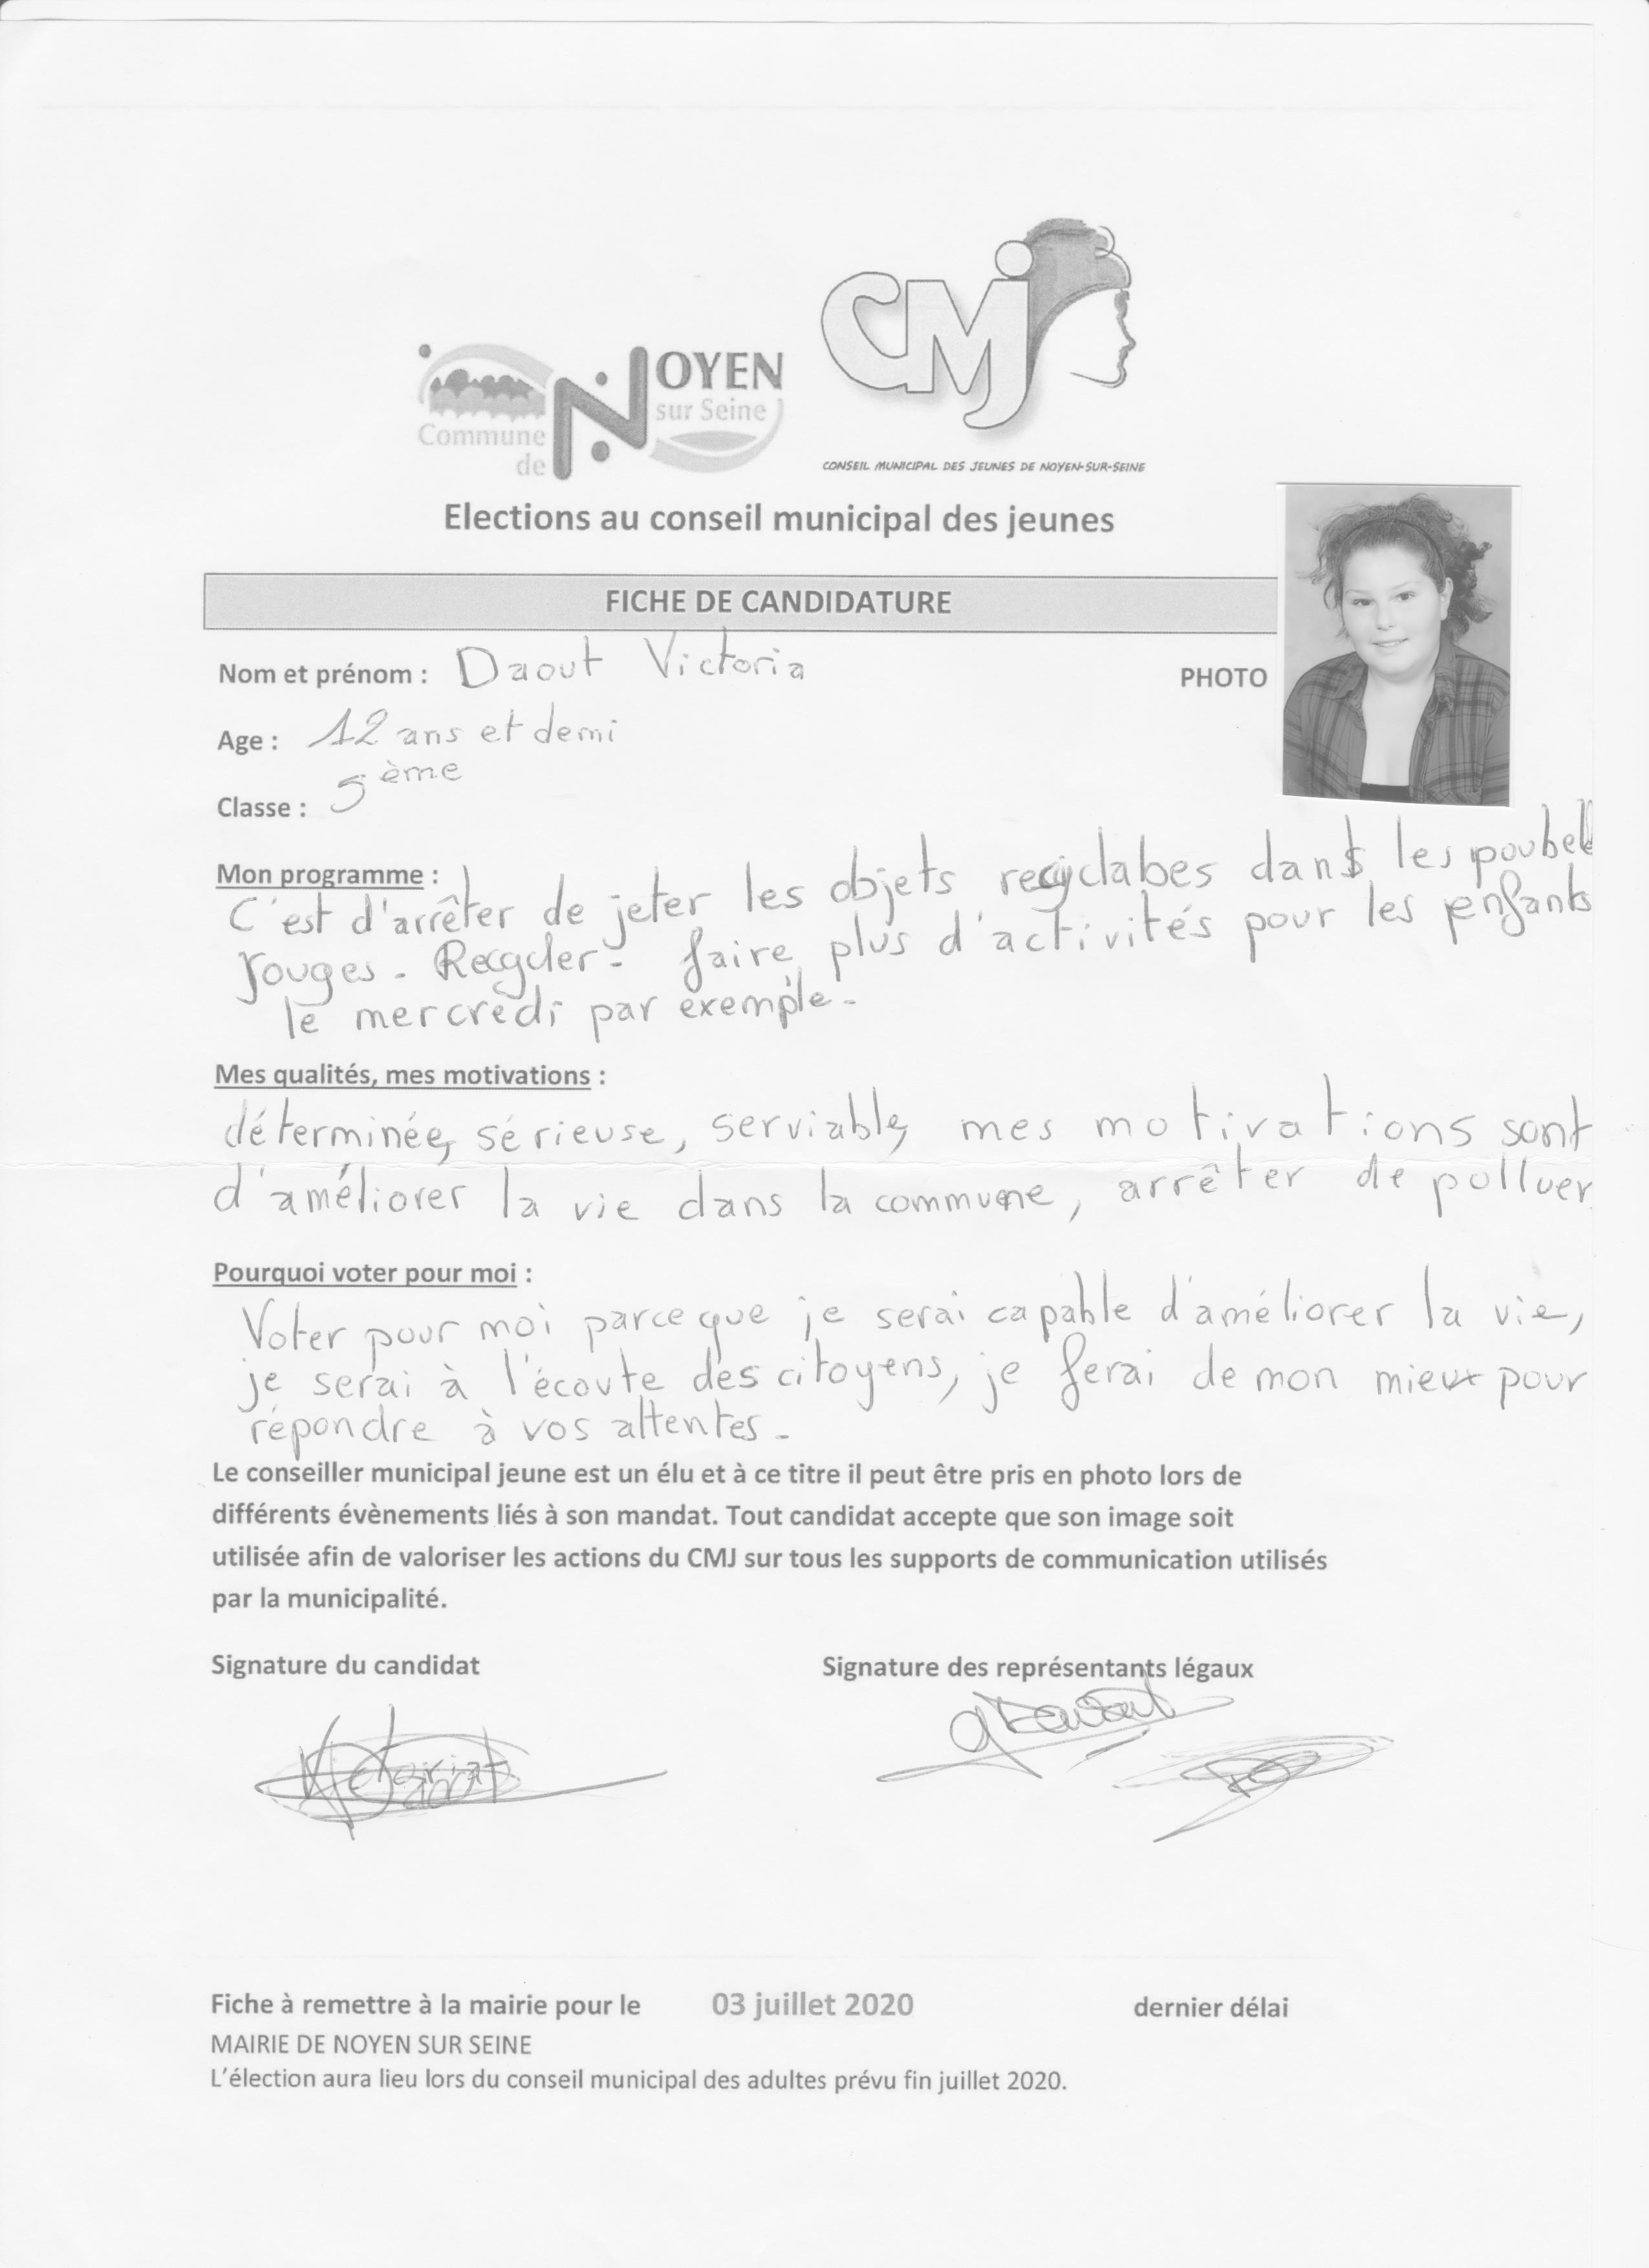 CMJ
NOYEN
sur Seine
Commune
de
CONSEIL MUNICIPAL DES JEUNES DE NOYEN-SUR-SEINE
Elections au conseil municipal des jeunes
FICHE DE CANDIDATURE
Nom et prénom : Daout Victoria
PHOTO
Age : 12 ans et demi
Classe : 5ème
Mon programme :
C'est d'arrêter de jeter les objets recyclabes dans les poubell
rouges. Recycler. faire plus d'activités pour les enfants
le mercredi par exemple.
Mes qualités, mes motivations :
déterminée, sérieuse, serviable, mes motivations sont
d'améliorer la vie dans la commune, arrêter de polluer
Pourquoi voter pour moi :
Voter pour moi parce que je serai capable d'améliorer la vie,
je serai à l'écoute des citoyens, je ferai de mon mieux pour
répondre à vos attentes.
Le conseiller municipal jeune est un élu et à ce titre il peut être pris en photo lors de
différents évènements liés à son mandat. Tout candidat accepte que son image soit
utilisée afin de valoriser les actions du CMJ sur tous les supports de communication utilisés
par la municipalité.
Signature du candidat
Signature des représentants légaux
Fiche à remettre à la mairie pour le 03 juillet 2020 dernier délai
MAIRIE DE NOYEN SUR SEINE
L'élection aura lieu lors du conseil municipal des adultes prévu fin juillet 2020.